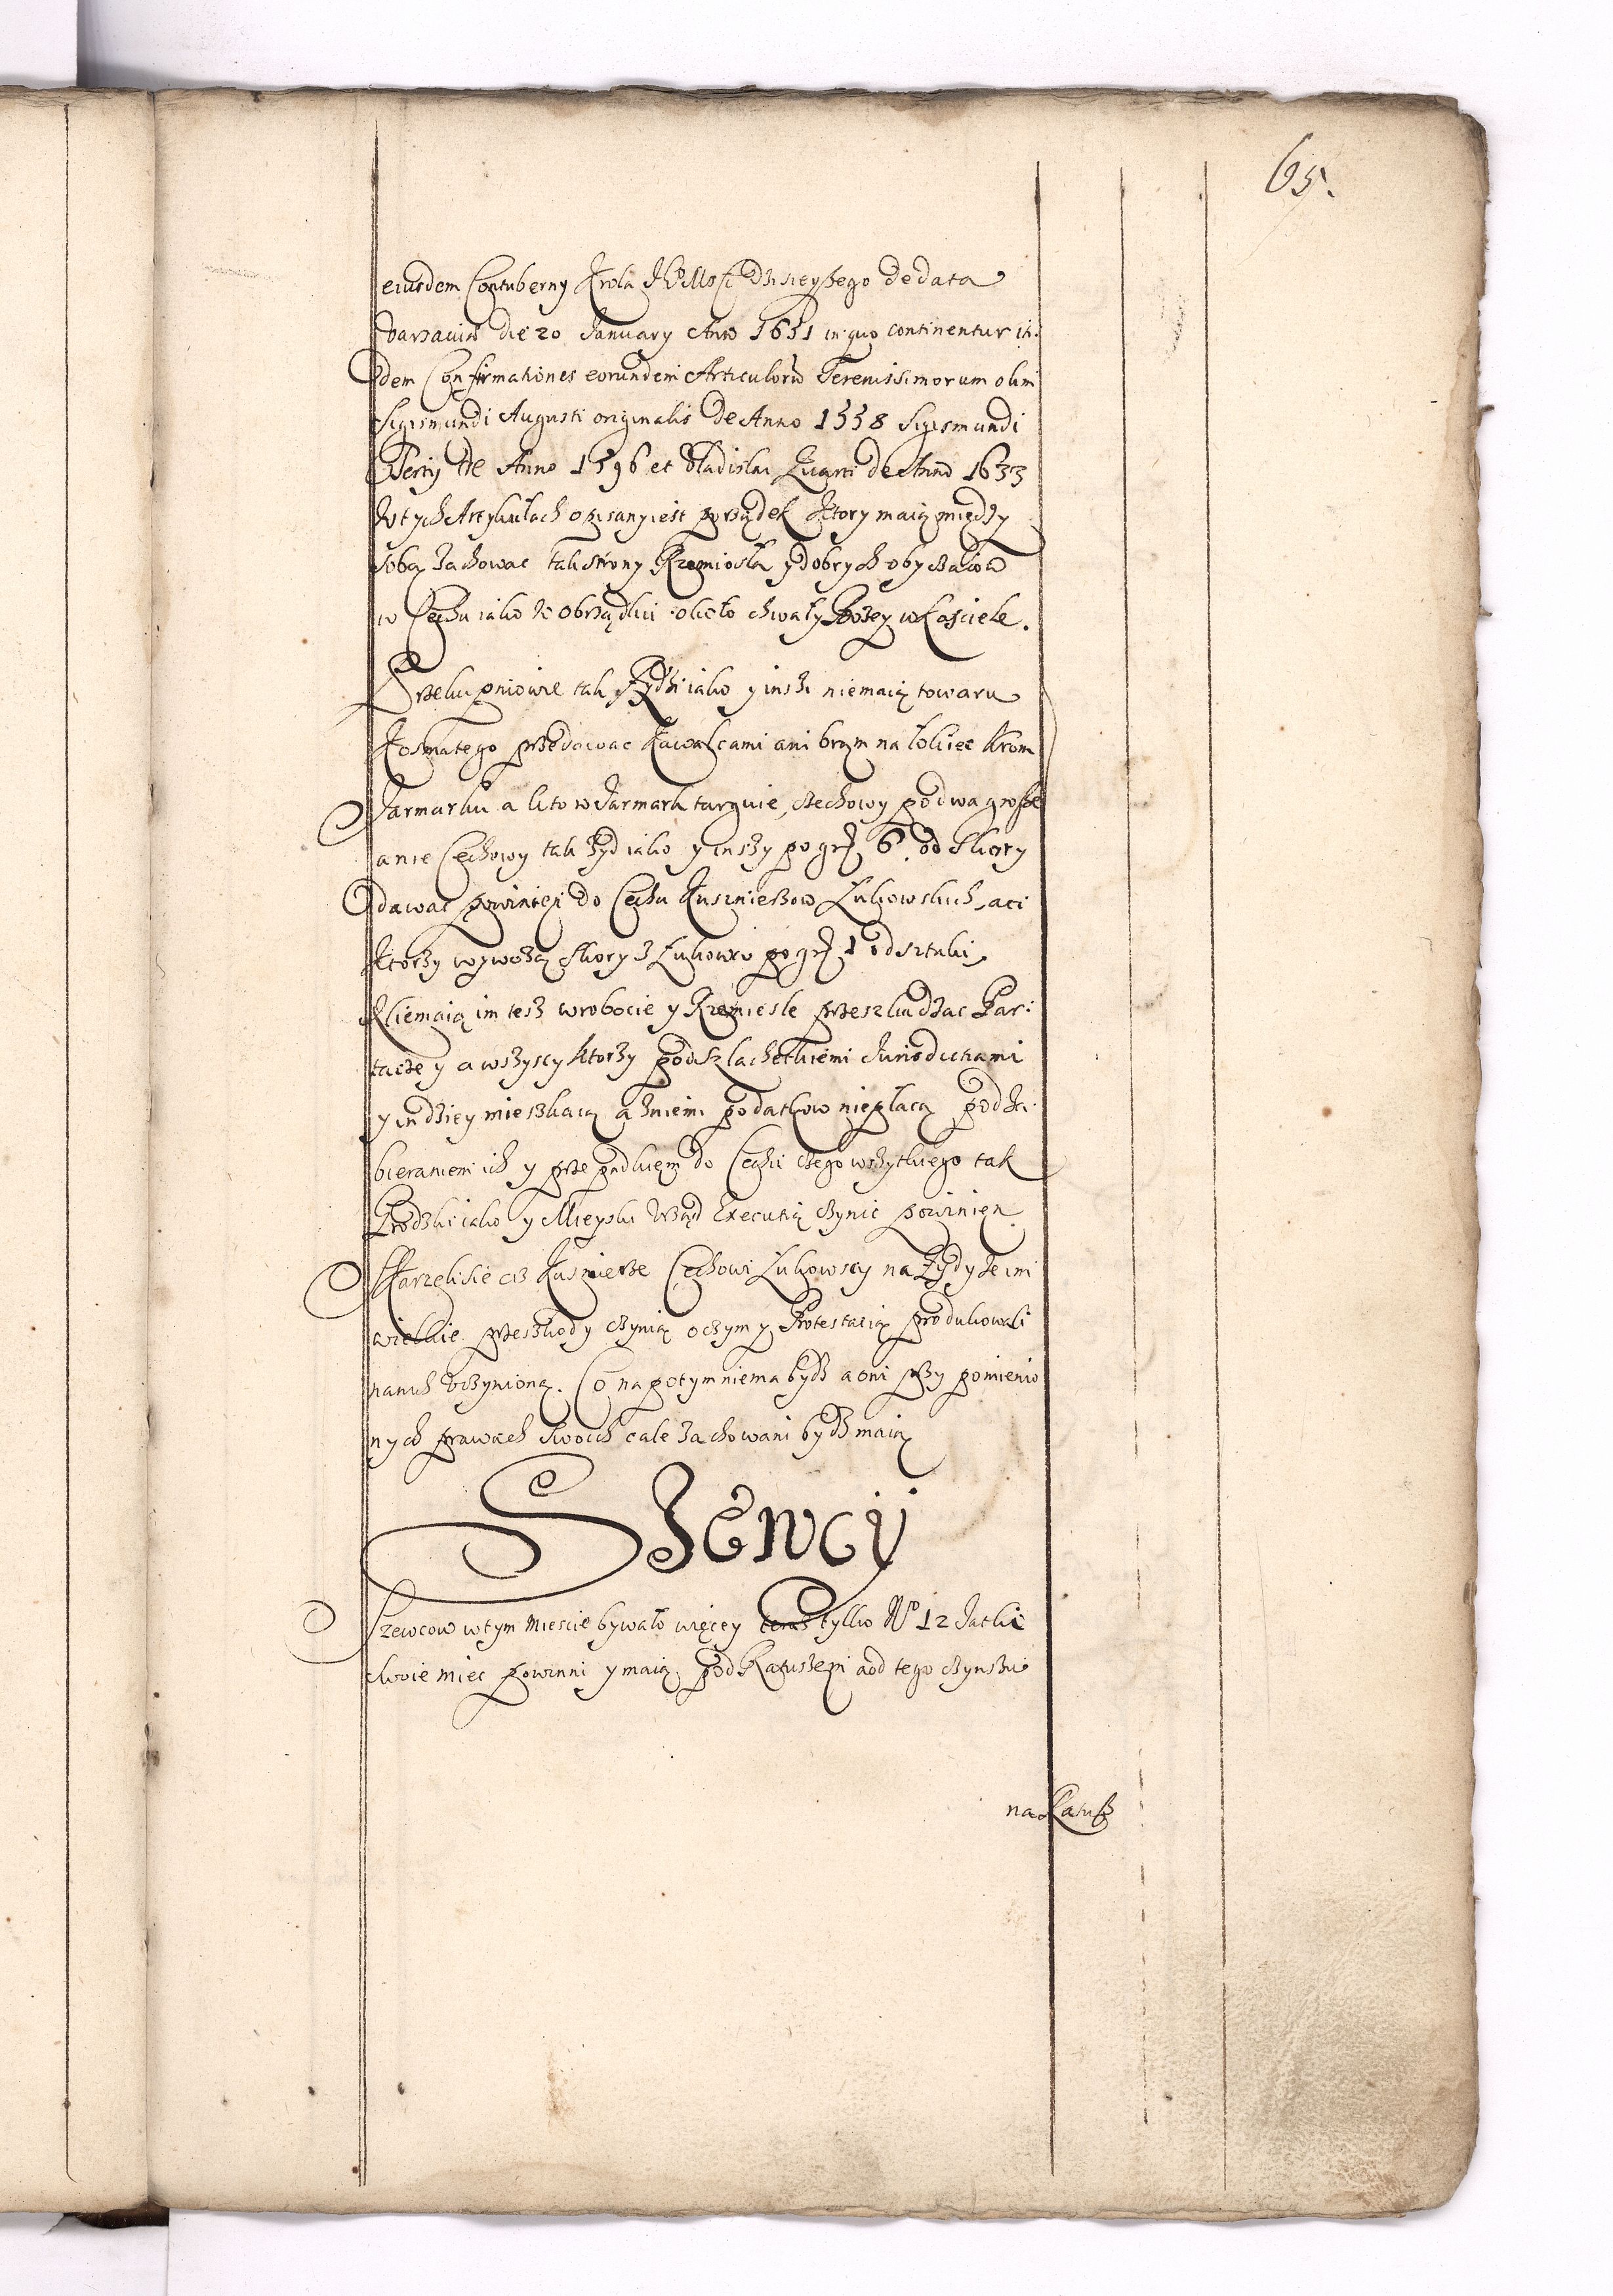 65.
eiusdem Contuberny Krola JKMosci dzisieyszego de data
Varsaviae die 20 January Anno 1651 in quo continentur ibi
dem Confirmationes eorundem Articulorum Serenissimorum olim
Sigismundi Augusti originalis de Anno 1558 Sigismundi
Tertij de Anno 1596 et Vladislai Quarti de Anno 1633
W tych Artykułach opisany iest porządek ktory maią między
sobą zachować tak strony Rzemiosła y dobrych obyczaiow
w Cechu iako z obrządku około chwały Bozey w Kosciele.
Przekupniowie tak Zydzi iako y inszi niemaią towaru
Kosmatego przedawac Kawalcami ani bram na łokiec krom
Jarmarku a kto w Jarmark targuie, Cechowy po dwa grosze
a nie Cechowy tak zyd iako y inszy po gr 6. od Skory
dawac powinien do Cechu Kusznierzow Łukowskich, a ci
Ktorzy wywożą skory z Łukowa po gr 1 od sztuki,
Niemaią im tesz w robocie y Rzemiesle przeszkadzac Par:
tacze y a wszyscy ktorzy pod szlacheckiemi Jurisdictiami
y indziey mieszkaią a z niemi podatkow niepłacą pod za:
bieraniem ich y przepadkiem do Cechu czego wszytkiego tak
Grodzki iako y Mieyski Vrząd Executią czynic powinien
Skarzeli sie cisz Kusnierze Cechowi Łukowscy na Zydy ze im
wielkie przeszkody czynią o czym y Protestatią produkowali
na nich vczynioną. Co na potym niema bydz a oni przy pomienio
nych prawach swoich cale zachowani bydz maią
Szewcy
Szewcow w tym miescie bywało więcey teras tylko No 12 Jatki
swoie miec powinni y maią pod Ratuszem a od tego czynszu
na Ratusz